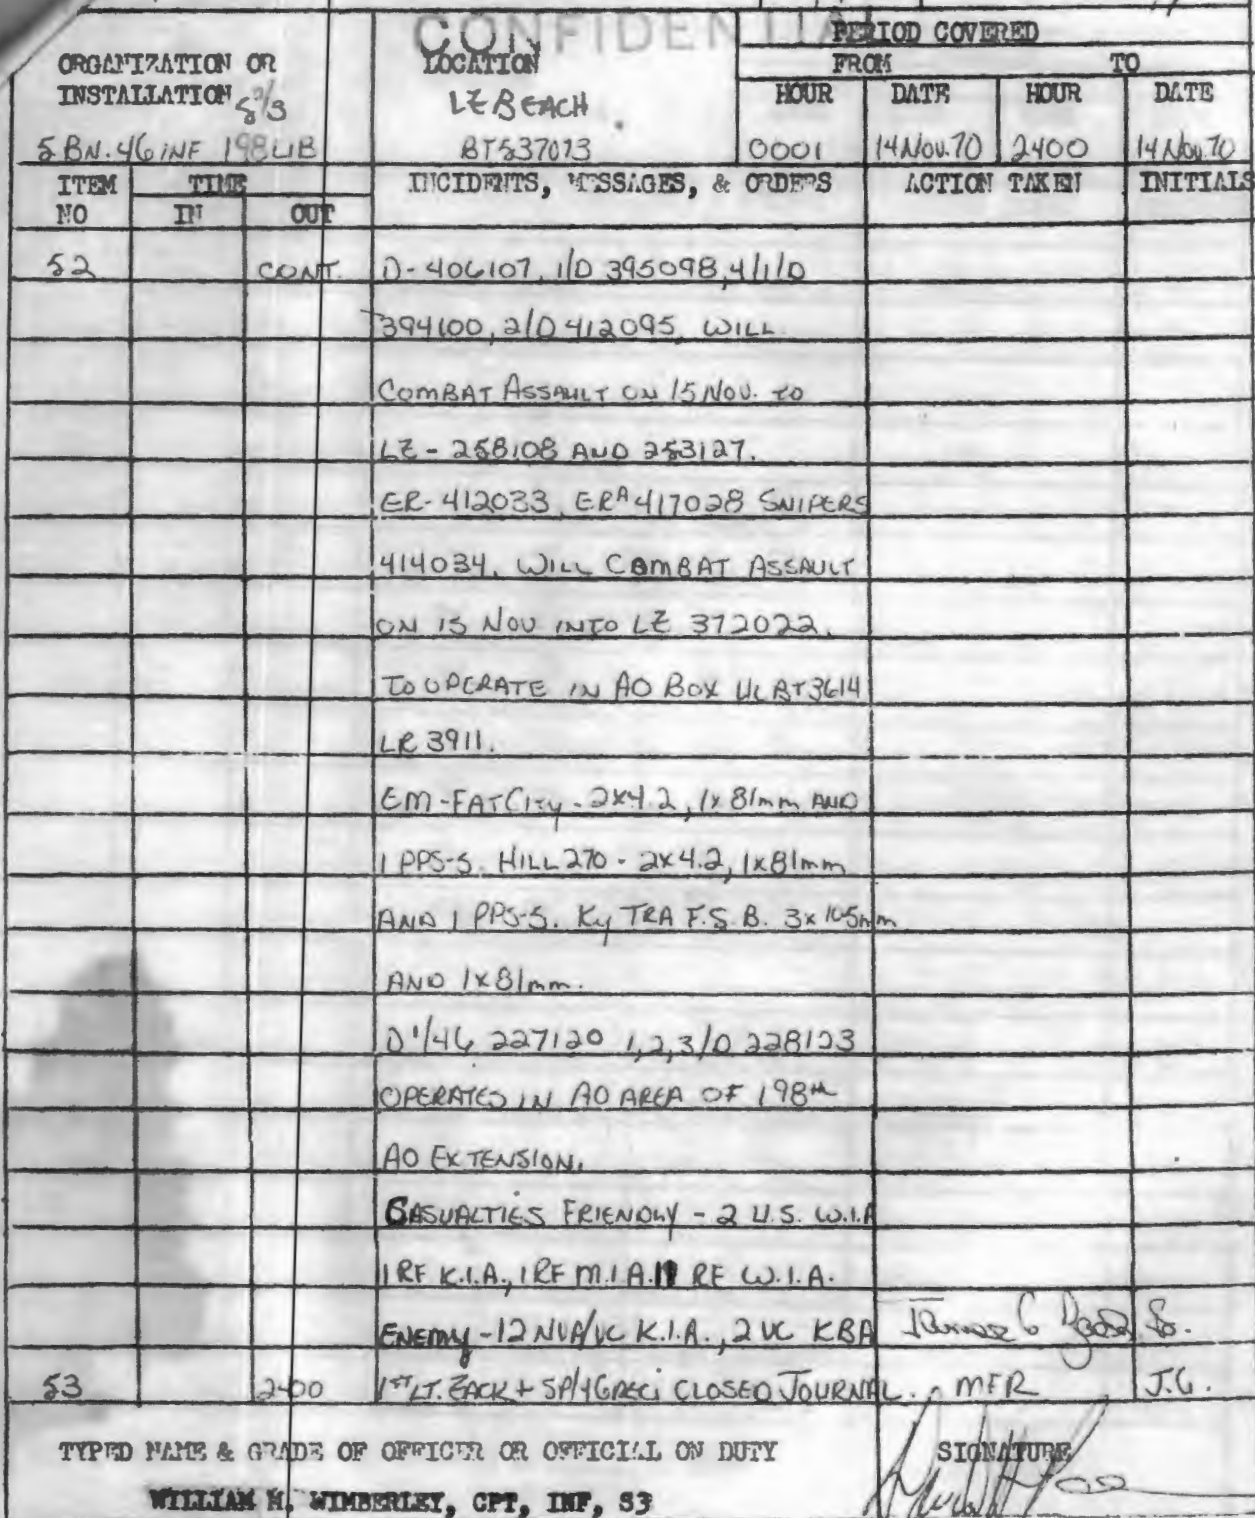 CONFIDENTIAL
PERIOD COVERED
ORGANIZATION OR
INSTALLATION
LOCATION
FROM TO
HOUR DATE HOUR DATE
LZ BEACH
5 BN. 46 INF 198 LIB BT537073 0001 14 Nov. 70 2400 14 Nov. 70
ITEM TIME INCIDENTS, MESSAGES, & ORDERS ACTION TAKEN INITIALS
NO IN OUT
52 CONT. D-406107, 1/D 395098, 4/1/D
394100, 2/D 412095, WILL
COMBAT ASSAULT ON 15 NOV. TO
LZ - 258108 AND 253127.
ER-412033, ERA 417028 SNIPERS
414034. WILL COMBAT ASSAULT
ON 15 NOV INTO LZ 372022.
TO OPERATE IN AO BOX UL BT3614
LR 3911.
EM-FAT CITY - 2x4.2, 1x 81mm AND
1 PPS-5. HILL 270 - 2x4.2, 1x81mm
AND 1 PPS-5. KY TRA F.S.B. 3x105mm
AND 1x81mm.
D 1/46 227120 1,2,3/D 228123
OPERATES IN AO AREA OF 198th
AO EXTENSION.
CASUALTIES FRIENDLY - 2 U.S. W.I.A
1 RF K.I.A., 1 RF M.I.A. RF W.I.A.
ENEMY - 12 NVA/VC K.I.A., 2 VC KBA
53 2400 1ST LT. ZACK + SP/4 GRECI CLOSED JOURNAL. MFR J.G.
TYPED NAME & GRADE OF OFFICER OR OFFICIAL ON DUTY SIGNATURE
WILLIAM H. WIMBERLEY, CPT, INF, S3